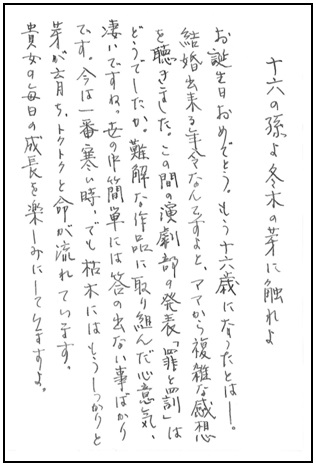 十六の孫よ冬木の芽に触れよ
お誕生日おめでとう。もう十六歳になったとは―。
結婚出来る年令なんですよと、ママから複雑な感想
を聴きました。この間の演劇部の発表「罪と罰」は
どうでしたか。難解な作品に取り組んだ心意気、
凄いですね。世の中簡単には答の出ない事ばかり
です。今は一番寒い時、でも枯木にはもうしっかりと
芽が育ち、トクトクと命が流れています。
貴女の毎日の成長を楽しみにしていますよ。